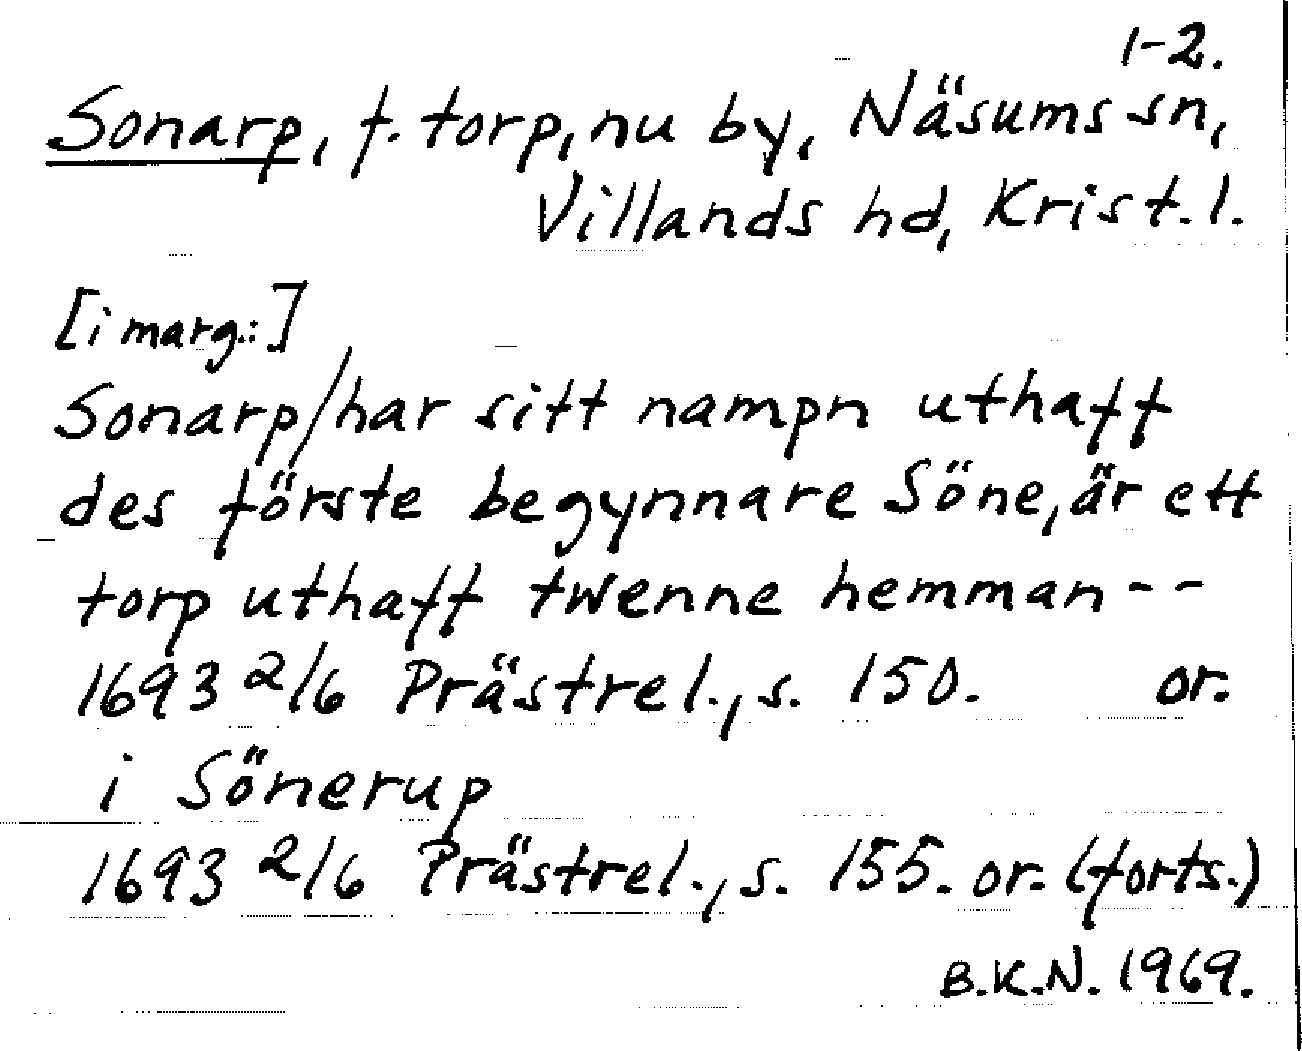 1-2.
Sonarp, f. torp, nu by, Näsums sn,
Villands hd, Krist. l.
[i marg.:]
Sonarp/har sitt nampn uthaff
des förste begynnare Söne, är ett
torp uthaff twenne hemman - -
1693 2/6 Prästrel., s. 150. or.
i Sönerup
1693 2/6 Prästrel., s. 155. or. (forts.)
B.K.N. 1969.